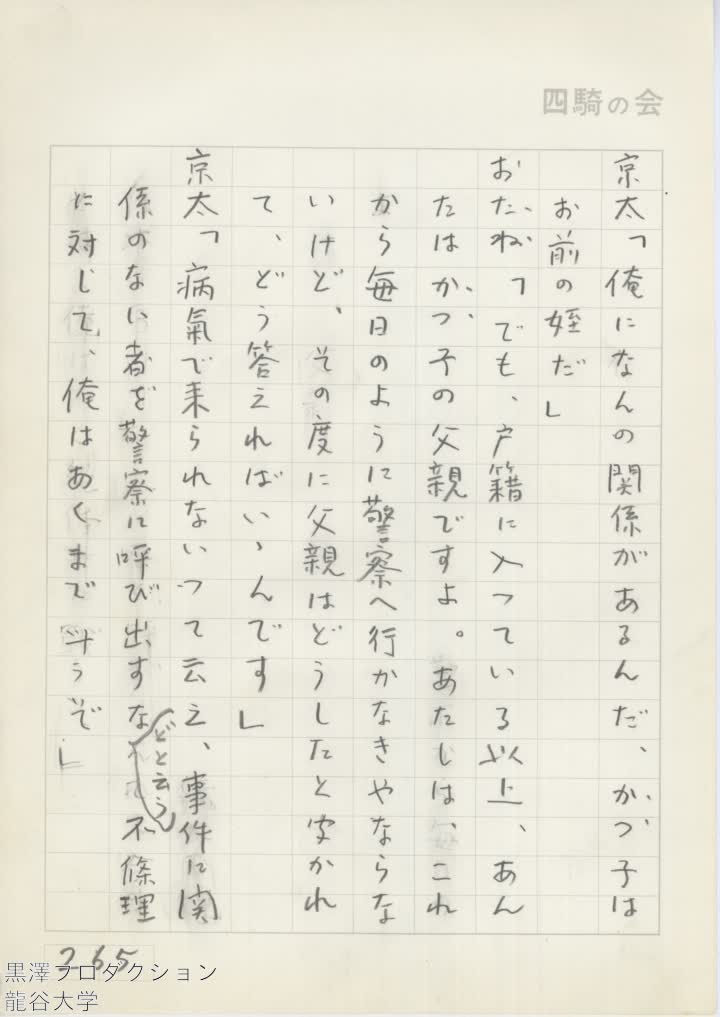 四騎の会
京太「俺になんの関係があるんだ、かつ子は
お前の姪だ」
おたね「でも、戸籍に入っている以上、あん
たはかつ子の父親ですよ。あたしは、これ
から毎日のように警察へ行かなきやならな
いけど、その度に父親はどうしたと安かれ
て、どう答えればいゝんです」
京太「病氣で来られないって云え、事件に関
係のない者を警察に呼び出すなどと云う不條理
に対して、俺はあくまで斗うぞ」
265
黒澤プロダクション
龍谷大学